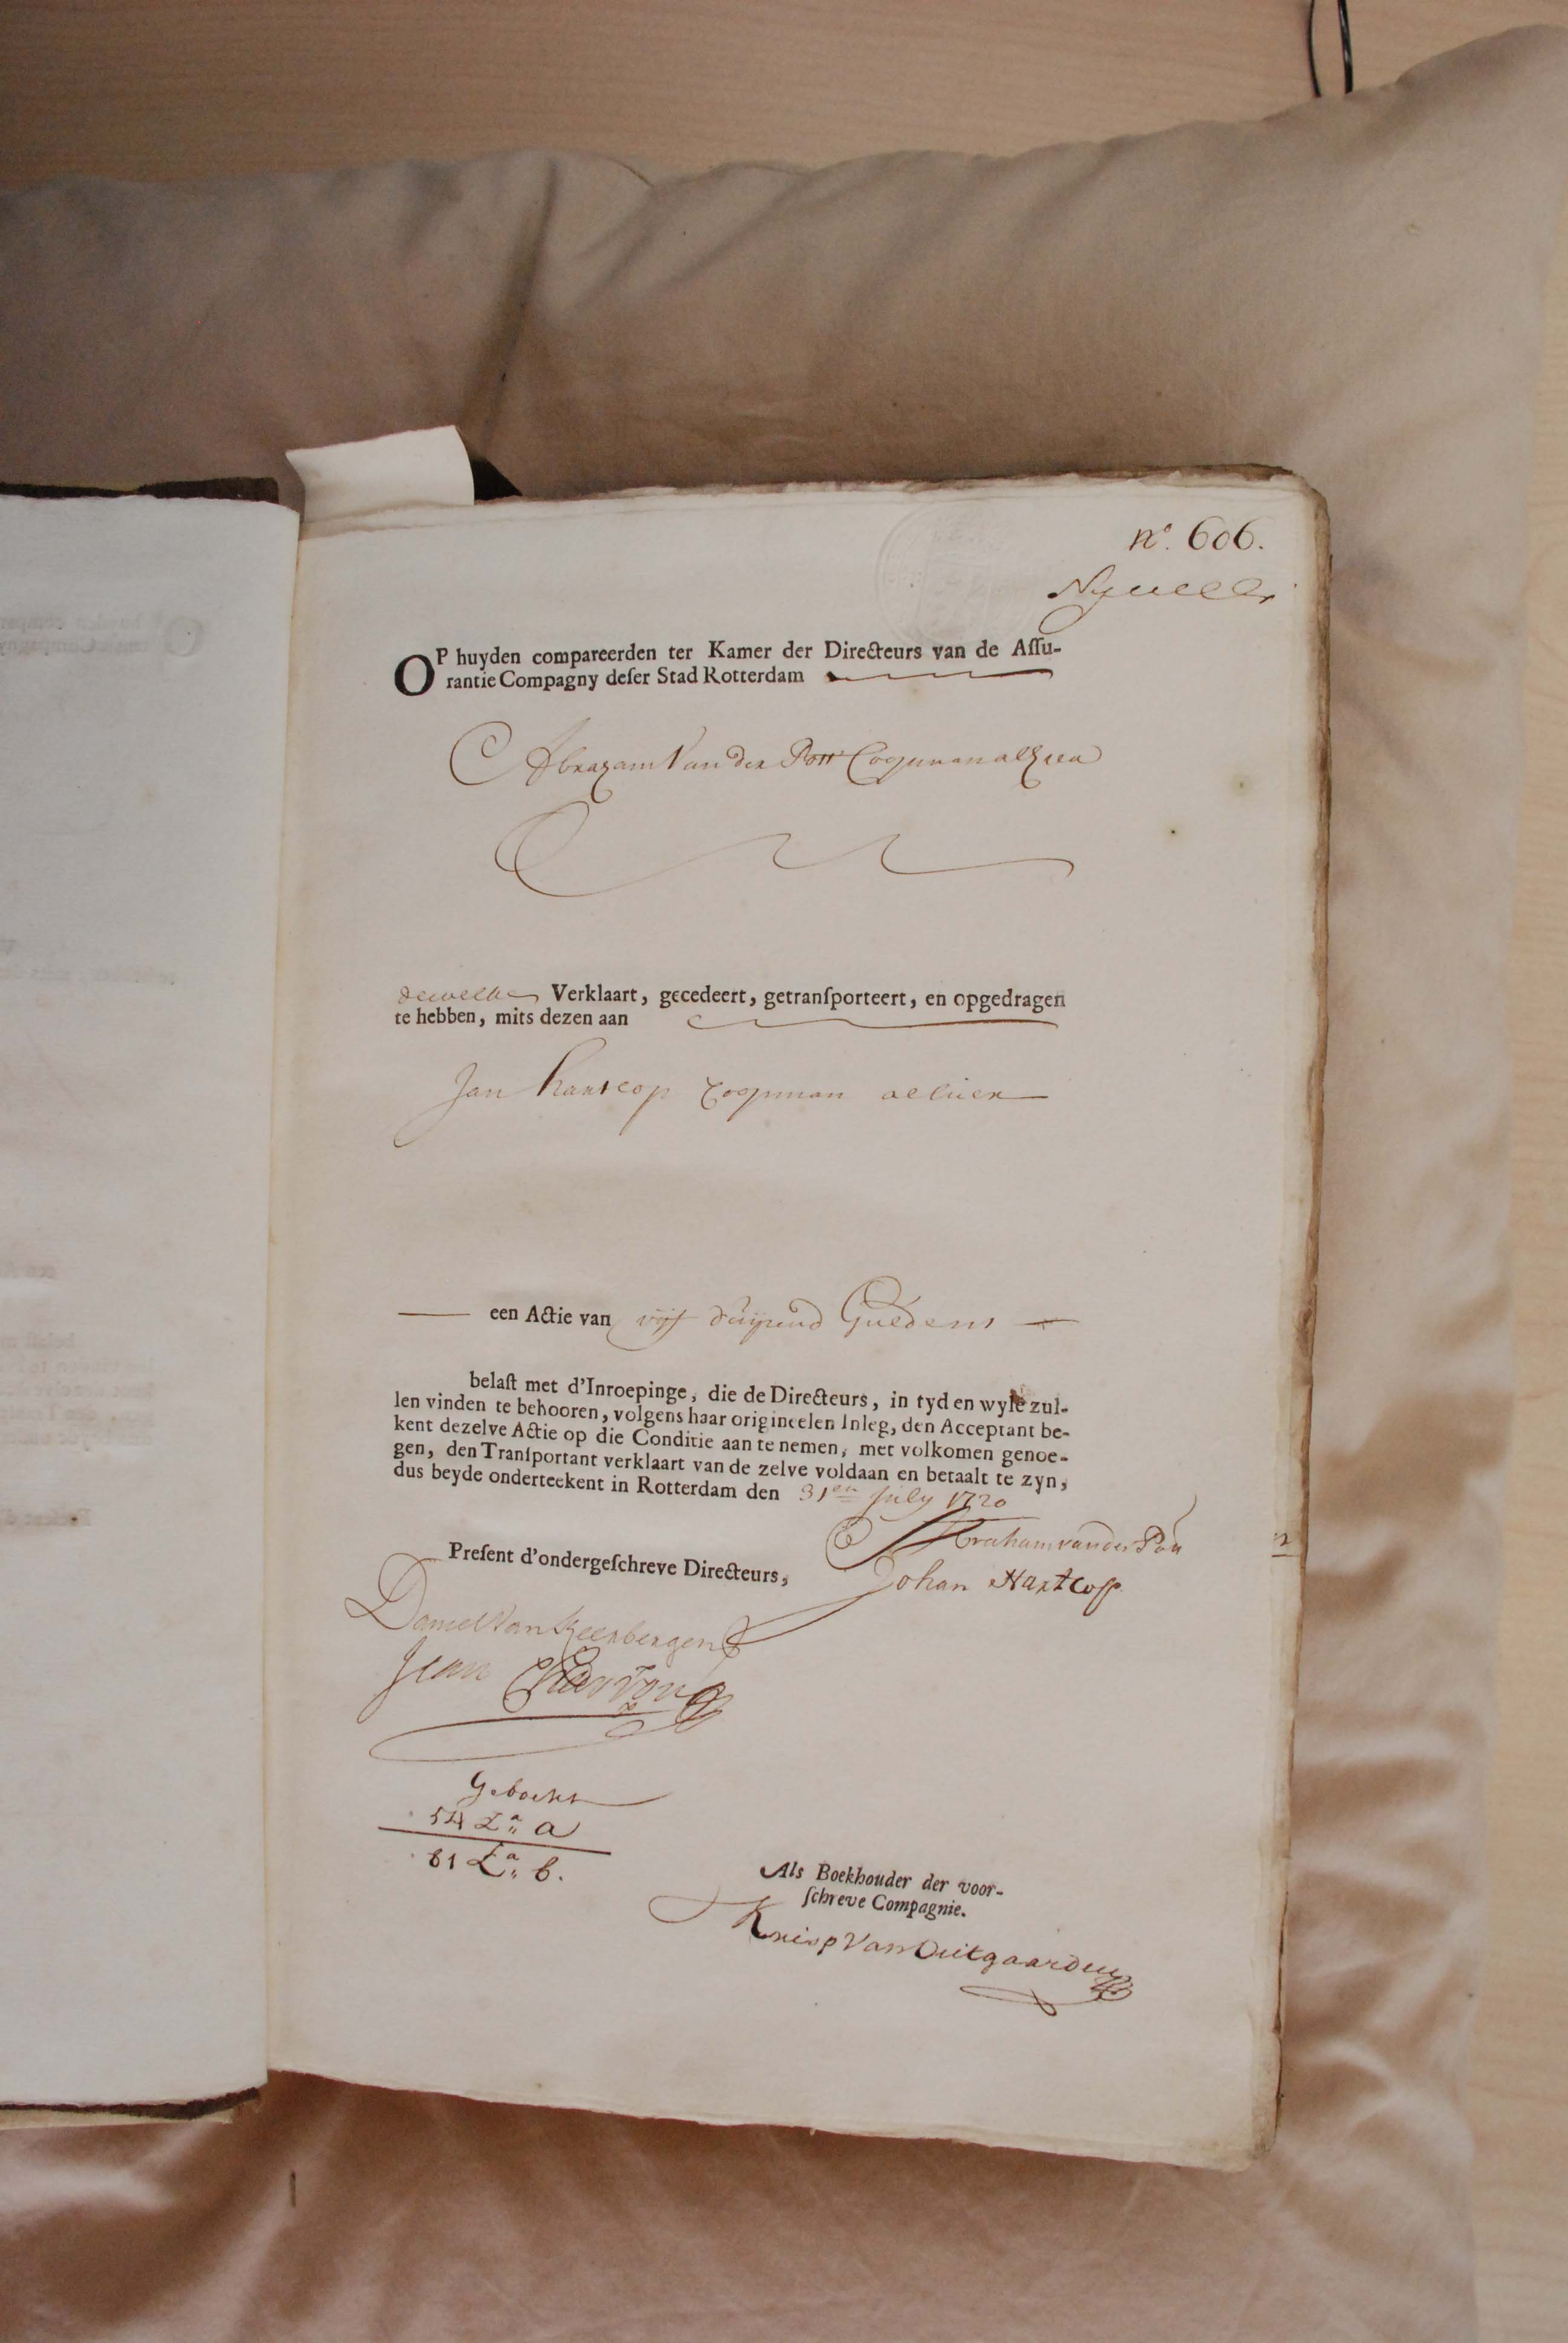 n.º 606.
OP huyden compareerden ter Kamer der Directeurs van de Aſſu-
rantie Compagny deſer Stad Rotterdam
Abraham Van der Pott Coopman alhier
dewelke Verklaart, gecedeert, getranſporteert, en opgedragen
te hebben, mits dezen aan
Jan hartcop Coopman alhier
een Actie van vijf duijsend Guldens
belaſt met d'Inroepinge, die de Directeurs, in tyd en wyle zul-
len vinden te behooren, volgens haar origineelen Inleg, den Acceptant be-
kent dezelve Actie op die Conditie aan te nemen, met volkomen genoe-
gen, den Tranſportant verklaart van de zelve voldaan en betaalt te zyn,
dus beyde onderteekent in Rotterdam den 31en July 1720
Abraham van der Pott
Preſent d'ondergeſchreve Directeurs,
Johan Hartcop
Daniel Van Keerbergen
Jean
Geboekt
54 La a
61 La b.
Als Boekhouder der voor-
ſchreve Compagnie.
Knisp Van Outgaarden